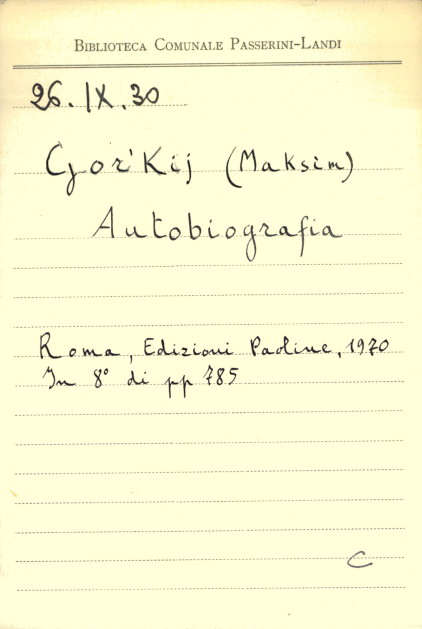 BIBLIOTECA COMUNALE PASSERINI-LANDI
26.IX.30
Gor'Kij (Maksim)
Autobiografia
Roma, Edizioni Paoline, 1970
In 8° di pp 785
C